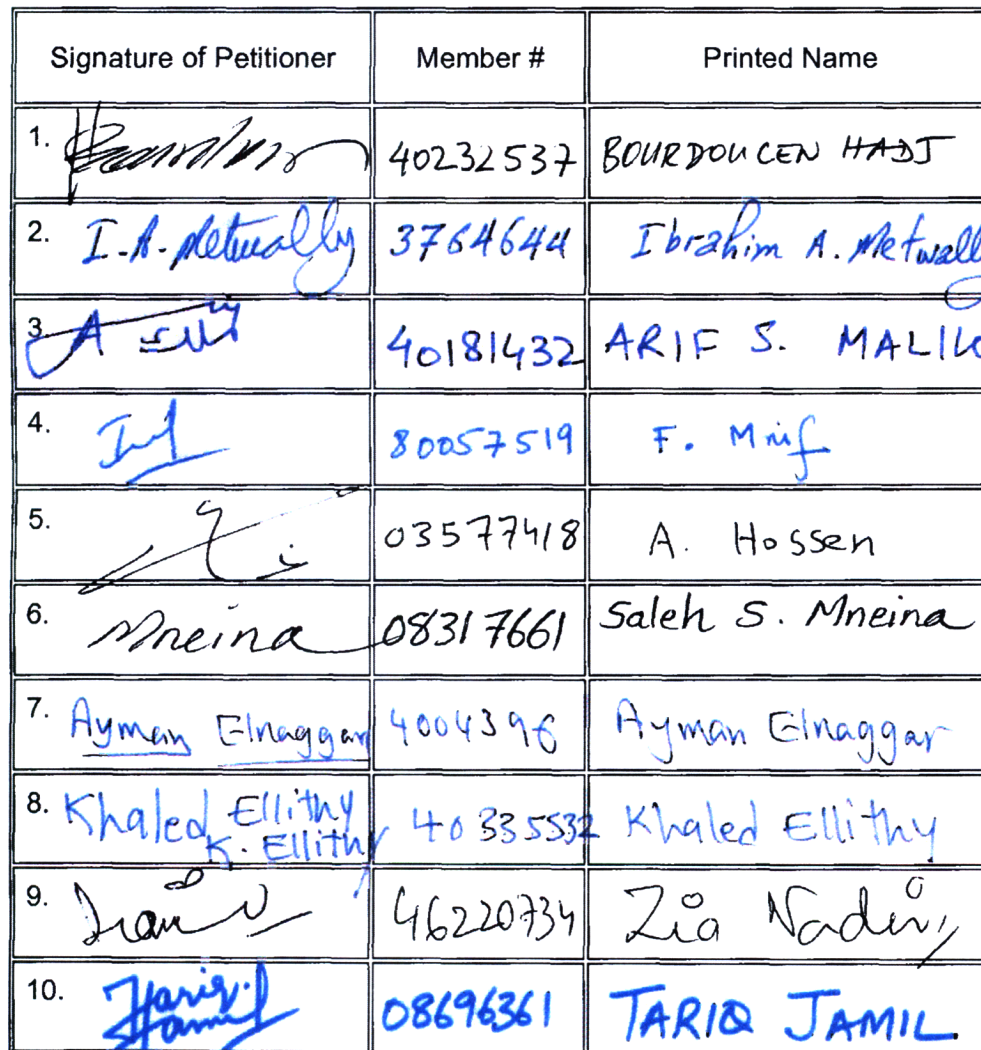 Signature of Petitioner Member # Printed Name
1. 40232537 BOURDOUCEN HADJ
2. I.A. Metwally 3764644 Ibrahim A. Metwally
3. 40181432 ARIF S. MALIK
4. 80057519 F. Mnif
5. 03577418 A. Hossen
6. Mneina 08317661 Saleh S. Mneina
7. Ayman Elnaggar 4004396 Ayman Elnaggar
8. Khaled Ellithy 40335532 Khaled Ellithy
K. Ellithy
9. 46220734 Zia Nadir
10. Tariq Jamil 08696361 TARIQ JAMIL